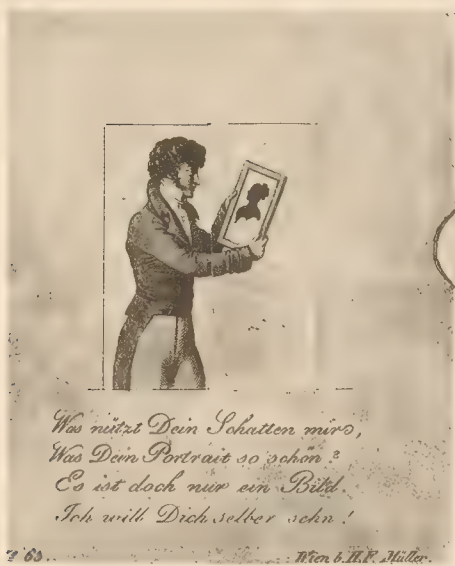 Was nützt Dein Schatten mir,
Was Dein Portrait so schön?
Es ist doch nur ein Bild.
Ich will Dich selber sehn!
63.
Wien b. H.F. Müller.